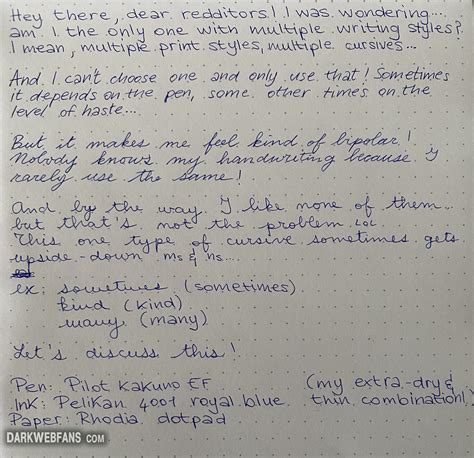 Hey there, dear redditors! I was wondering...
am I the only one with multiple writing styles?
I mean, multiple print styles, multiple cursives...
And I can't choose one and only use that! Sometimes
it depends on the pen, some other times on the
level of haste...
But it makes me feel kind of bipolar!
Nobody knows my handwriting because I
rarely use the same!
And by the way I like none of them
but that's not the problem LOL
This one type of cursive sometimes gets
upside-down ms & ns...
ex: sometimes (sometimes)
kind (kind)
many (many)
Let's discuss this!
Pen: Pilot Kakuno EF (my extra-dry &
Ink: Pelikan 4001 royal blue thin combination!)
Paper: Rhodia dotpad
DARKWEBFANS.COM